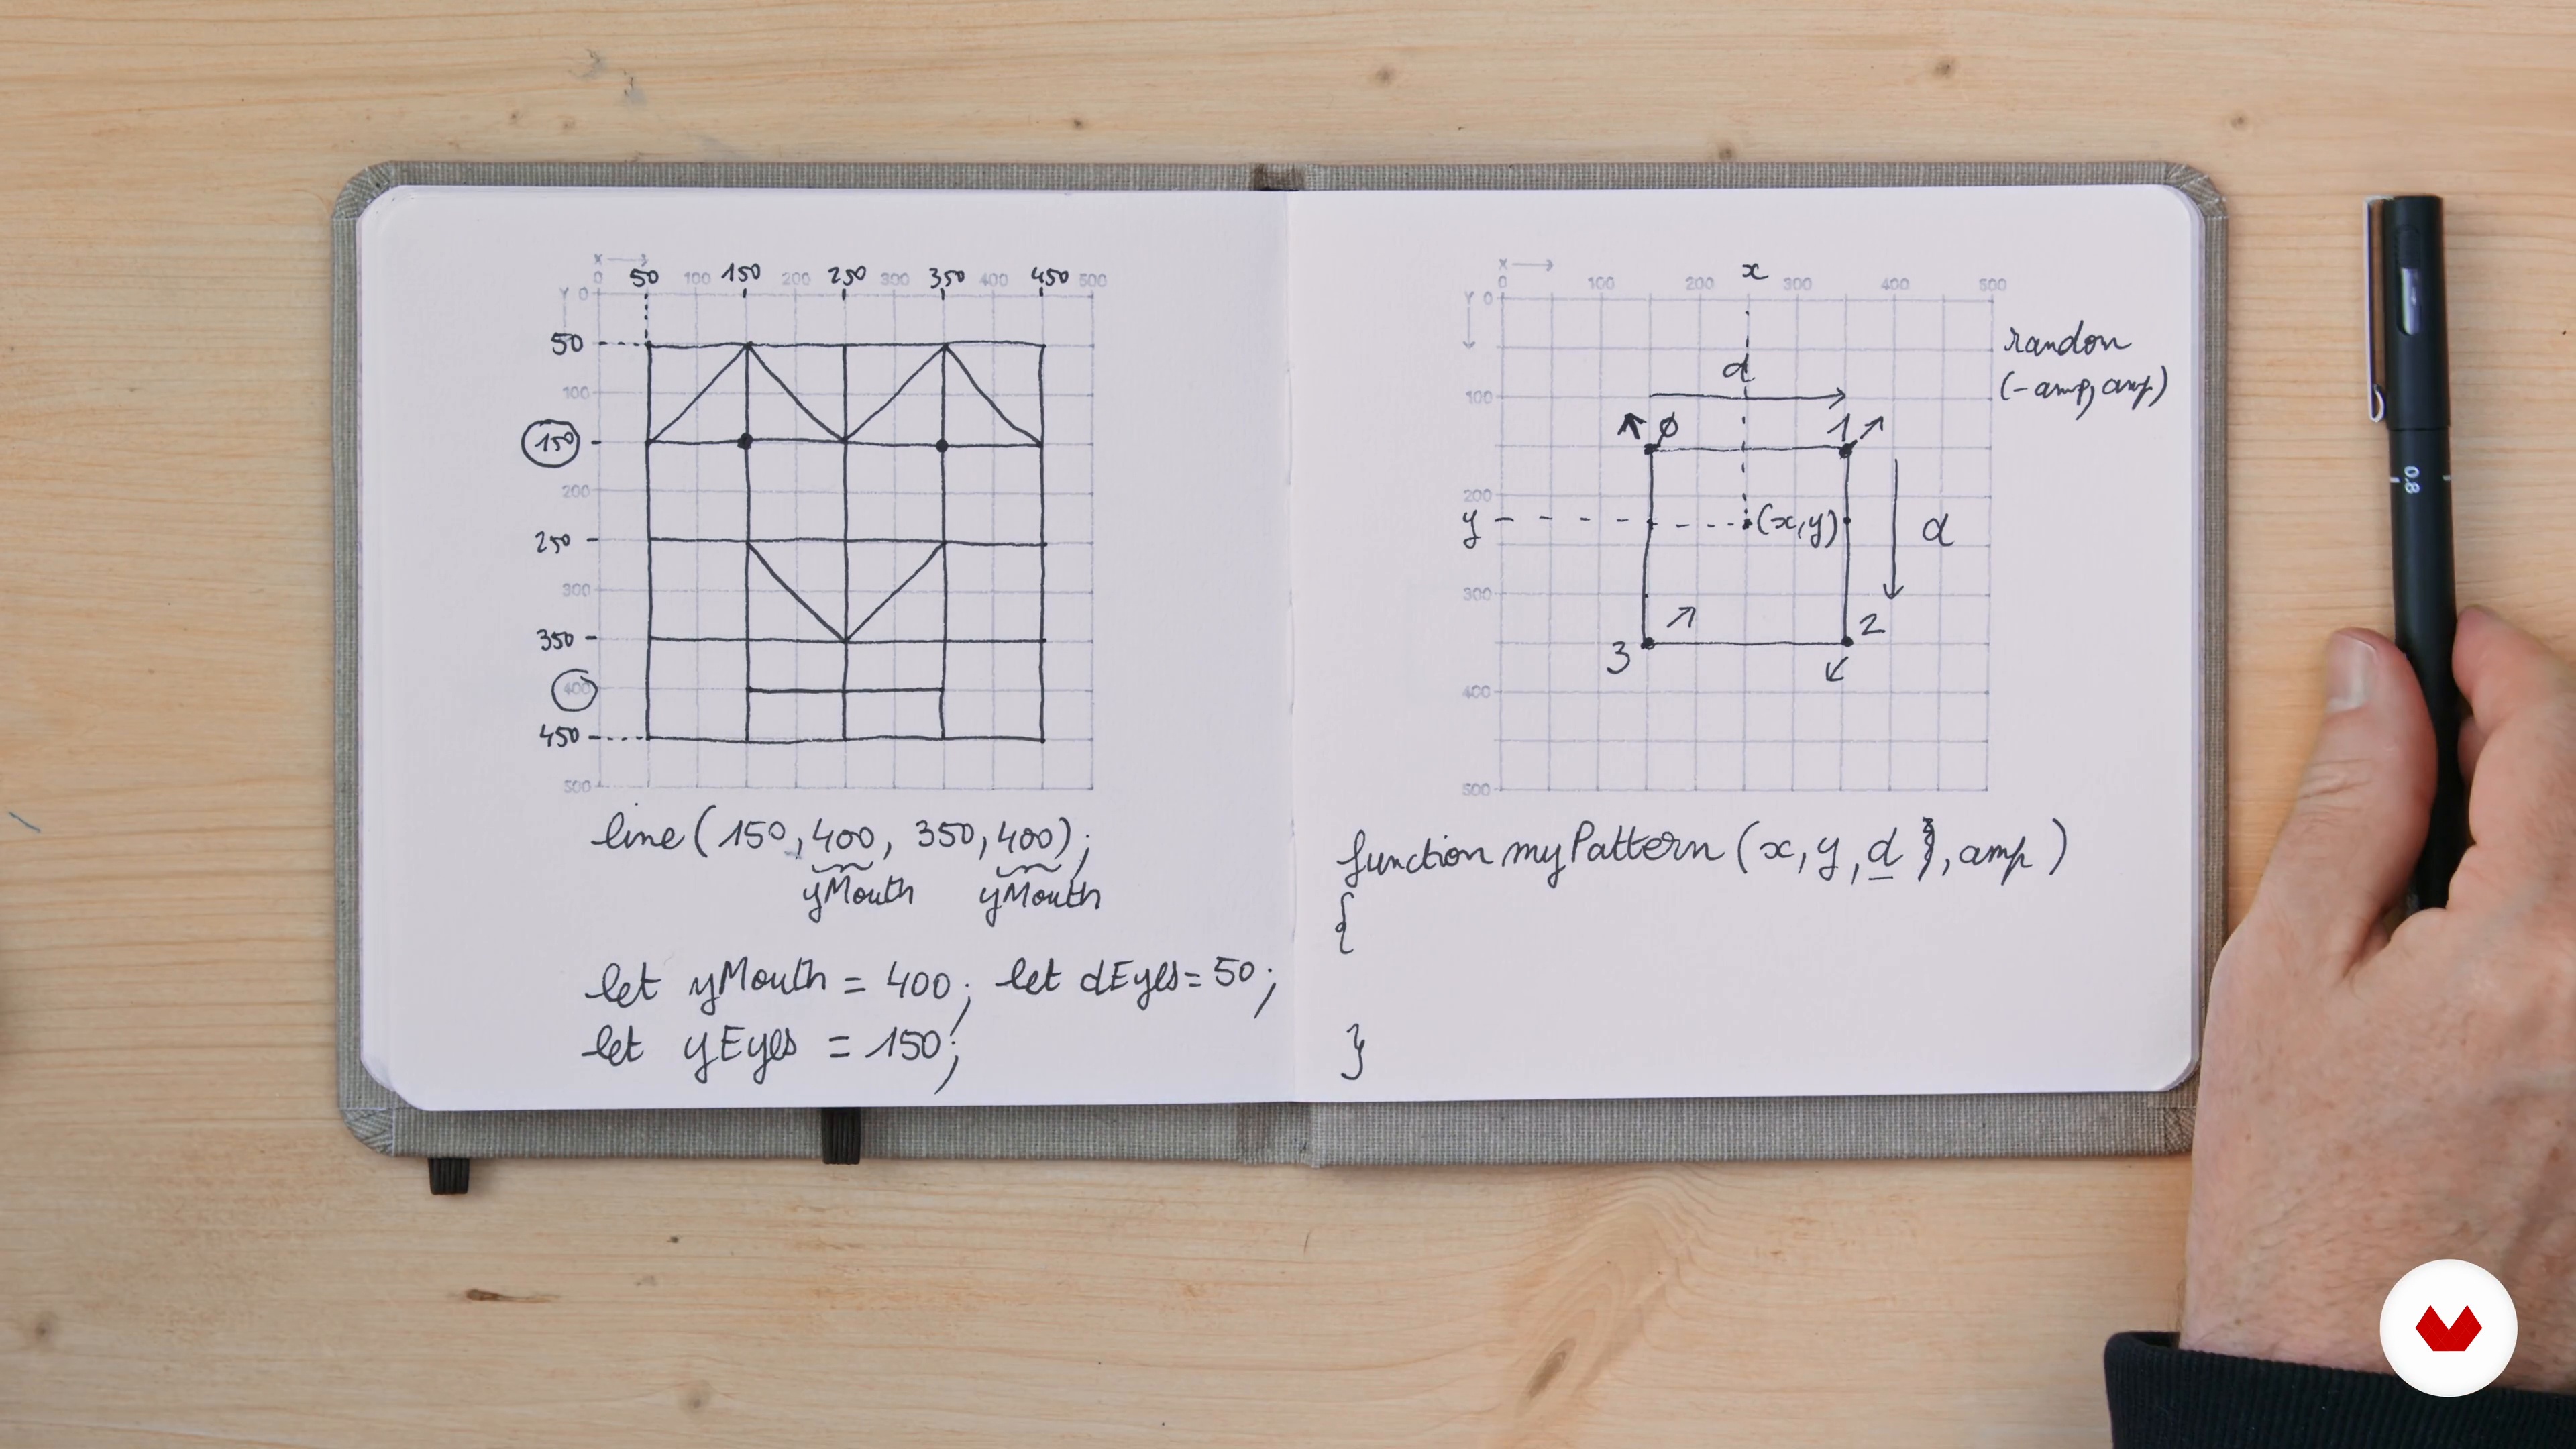 X
0 50 100 150 200 250 300 350 400 450 500
Y 0
50
100
150
200
250
300
350
400
450
500
line(150,400, 350,400);
yMouth yMouth
let yMouth = 400; let dEyes=50;
let yEyes = 150;
x
X
0 100 200 300 400 500
Y 0
random
(-amp, amp)
d
100
Ø 1
200
y (x,y) d
300
3 2
400
500
function myPattern (x, y, d), amp)
{
}
0.8